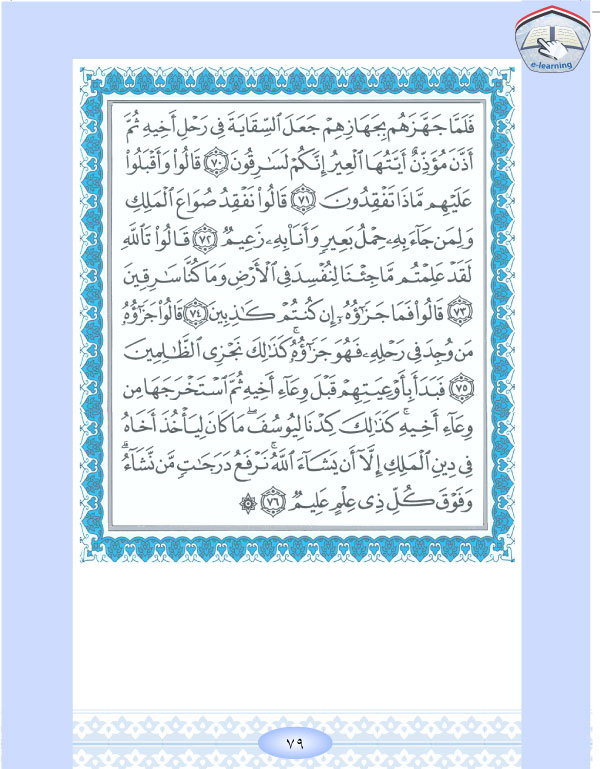 e-learning
فَلَمَّا جَهَّزَهُم بِجَهَازِهِمْ جَعَلَ ٱلسِّقَايَةَ فِى رَحْلِ أَخِيهِ ثُمَّ
أَذَّنَ مُؤَذِّنٌ أَيَّتُهَا ٱلْعِيرُ إِنَّكُمْ لَسَـٰرِقُونَ ٧٠ قَالُوا۟ وَأَقْبَلُوا۟
عَلَيْهِم مَّاذَا تَفْقِدُونَ ٧١ قَالُوا۟ نَفْقِدُ صُوَاعَ ٱلْمَلِكِ
وَلِمَن جَآءَ بِهِۦ حِمْلُ بَعِيرٍ وَأَنَا۠ بِهِۦ زَعِيمٌ ٧٢ قَالُوا۟ تَٱللَّهِ
لَقَدْ عَلِمْتُم مَّا جِئْنَا لِنُفْسِدَ فِى ٱلْأَرْضِ وَمَا كُنَّا سَـٰرِقِينَ
٧٣ قَالُوا۟ فَمَا جَزَٰٓؤُهُۥٓ إِن كُنتُمْ كَـٰذِبِينَ ٧٤ قَالُوا۟ جَزَٰٓؤُهُۥ
مَن وُجِدَ فِى رَحْلِهِۦ فَهُوَ جَزَٰٓؤُهُۥ ۚ كَذَٰلِكَ نَجْزِى ٱلظَّـٰلِمِينَ
٧٥ فَبَدَأَ بِأَوْعِيَتِهِمْ قَبْلَ وِعَآءِ أَخِيهِ ثُمَّ ٱسْتَخْرَجَهَا مِن
وِعَآءِ أَخِيهِ ۚ كَذَٰلِكَ كِدْنَا لِيُوسُفَ ۖ مَا كَانَ لِيَأْخُذَ أَخَاهُ
فِى دِينِ ٱلْمَلِكِ إِلَّآ أَن يَشَآءَ ٱللَّهُ ۚ نَرْفَعُ دَرَجَـٰتٍ مَّن نَّشَآءُ ۗ
وَفَوْقَ كُلِّ ذِى عِلْمٍ عَلِيمٌ ٧٦ ۞
٧٩